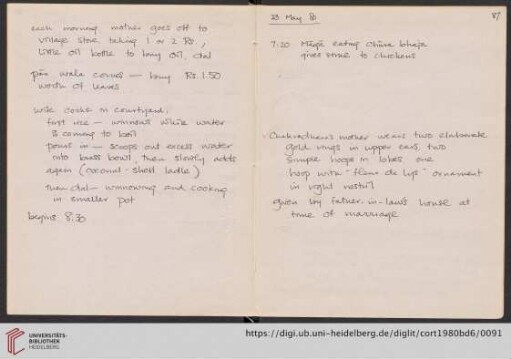 each morning mother goes off to
village store taking 1 or 2 Rs.,
little oil bottle to buy oil, dal
pān wala comes — buy Rs 1.50
worth of leaves
wife cooks in courtyard:
first rice — winnows while water
is coming to boil
pours in — scoops out excess water
into brass bowl, then slowly adds
again (coconut-shell ladle)
then dal — winnowing and cooking
in smaller pot
begins 8:30
23 May 80
87
7:20 eating bhaja
gives some to chickens
Chakradhara's mother wears two elaborate
gold rings in upper ears, two
simple hoops in lobes one
hoop with "fleur de lys" ornament
in right nostril
given by father-in-law's house at
time of marriage
UNIVERSITÄTS-
BIBLIOTHEK
HEIDELBERG
https://digi.ub.uni-heidelberg.de/diglit/cort1980bd6/0091